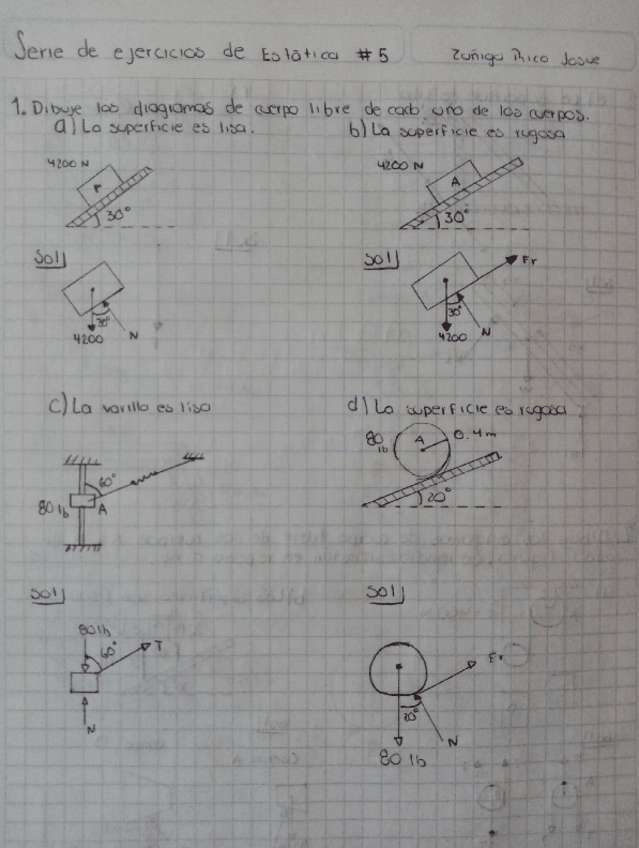 Serie de ejercicios de Estática #5
Zuñiga Rico Josue
1. Dibuje los diagramas de cuerpo libre de cada uno de los cuerpos.
a) La superficie es lisa.
b) La superficie es rugosa
4200 N
r
30°
4200 N
A
30°
Sol
30°
N
4200
Sol
Fr
30°
N
4200
c) La varilla es lisa
d) La superficie es rugosa
60°
80 lb
A
80 lb
A
0.4m
20°
Sol
80 lb
60°
T
N
Sol
Fr
20°
N
80 lb